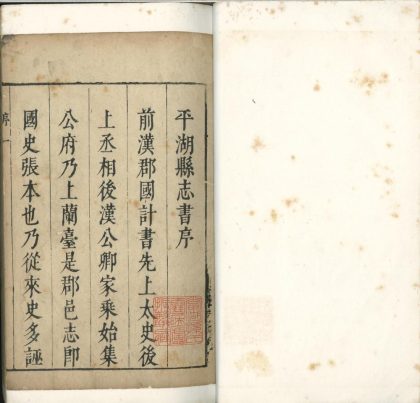 平湖縣志書序
前漢郡國計書先上太史後
上丞相後漢公卿家乘始集
公府乃上蘭臺是郡邑志即
國史張本也乃從來史多誣
序